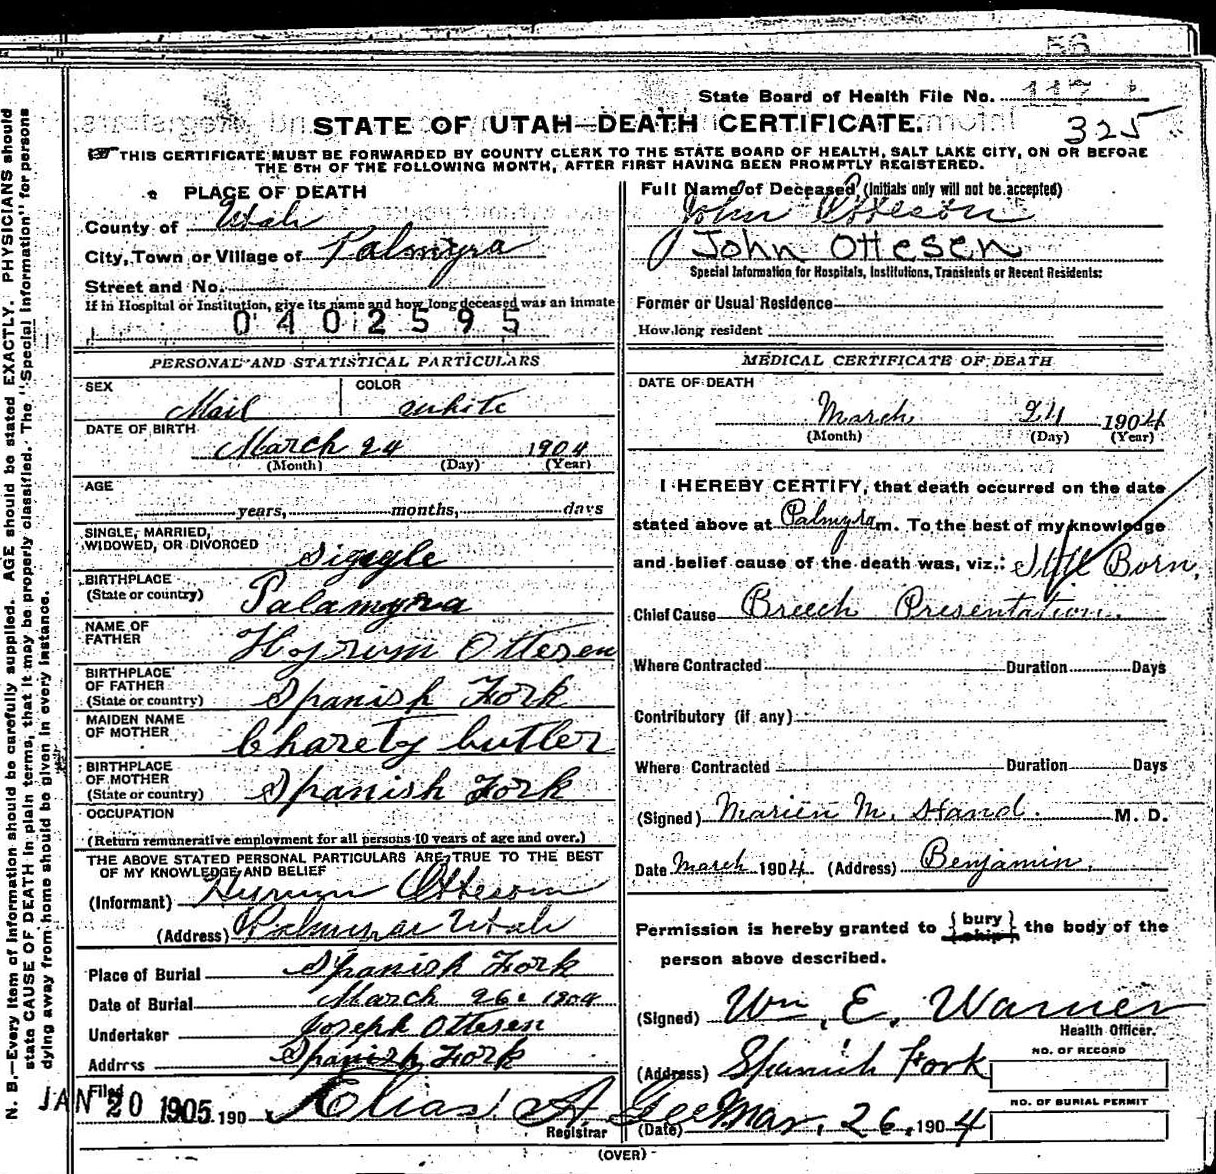 56
State Board of Health File No. 117
STATE OF UTAH—DEATH CERTIFICATE.
325
THIS CERTIFICATE MUST BE FORWARDED BY COUNTY CLERK TO THE STATE BOARD OF HEALTH, SALT LAKE CITY, ON OR BEFORE
THE 5TH OF THE FOLLOWING MONTH, AFTER FIRST HAVING BEEN PROMPTLY REGISTERED.
N. B.—Every item of information should be carefully supplied. AGE should be stated EXACTLY. PHYSICIANS should
state CAUSE OF DEATH in plain terms, that it may be properly classified. The "Special Information" for persons
dying away from home should be given in every instance.
PLACE OF DEATH
County of Utah
City, Town or Village of Palmyra
Street and No.
If in Hospital or Institution, give its name and how long deceased was an inmate
0402595
PERSONAL AND STATISTICAL PARTICULARS
SEX COLOR
Mail white
DATE OF BIRTH
March 24 1904
(Month) (Day) (Year)
AGE
years, months, days
SINGLE, MARRIED,
WIDOWED, OR DIVORCED
BIRTHPLACE
(State or country) Palamyra
NAME OF
FATHER Hyrum Ottesen
BIRTHPLACE
OF FATHER
(State or country) Spanish Fork
MAIDEN NAME
OF MOTHER Charety butler
BIRTHPLACE
OF MOTHER
(State or country) Spanish Fork
OCCUPATION
(Return remunerative employment for all persons 10 years of age and over.)
THE ABOVE STATED PERSONAL PARTICULARS ARE TRUE TO THE BEST
OF MY KNOWLEDGE AND BELIEF
(Informant) Hyrum Otteson
(Address) Utah
Place of Burial Spanish Fork
Date of Burial March 26. 1904
Undertaker Joseph Ottesen
Address Spanish Fork
Filed
JAN 20 1905 190
Elias A. Gee
Registrar
Full Name of Deceased (Initials only will not be accepted)
John Otteson
John Ottesen
Special Information for Hospitals, Institutions, Transients or Recent Residents:
Former or Usual Residence
How long resident
MEDICAL CERTIFICATE OF DEATH
DATE OF DEATH
March 24 1904
(Month) (Day) (Year)
I HEREBY CERTIFY, that death occurred on the date
stated above at Palmyra m. To the best of my knowledge
and belief cause of the death was, viz.: Still Born,
Chief Cause Breech Presentation.
Where Contracted Duration Days
Contributory (if any)
Where Contracted Duration Days
(Signed) Marien M. Hand. M. D.
Date March 1904 (Address) Benjamin.
Permission is hereby granted to { bury } the body of the
{ ship }
person above described.
(Signed) Wm. E. Warner
Health Officer.
(Address) Spanish Fork
NO. OF RECORD
NO. OF BURIAL PERMIT
(Date) Mar. 26, 1904
(OVER)